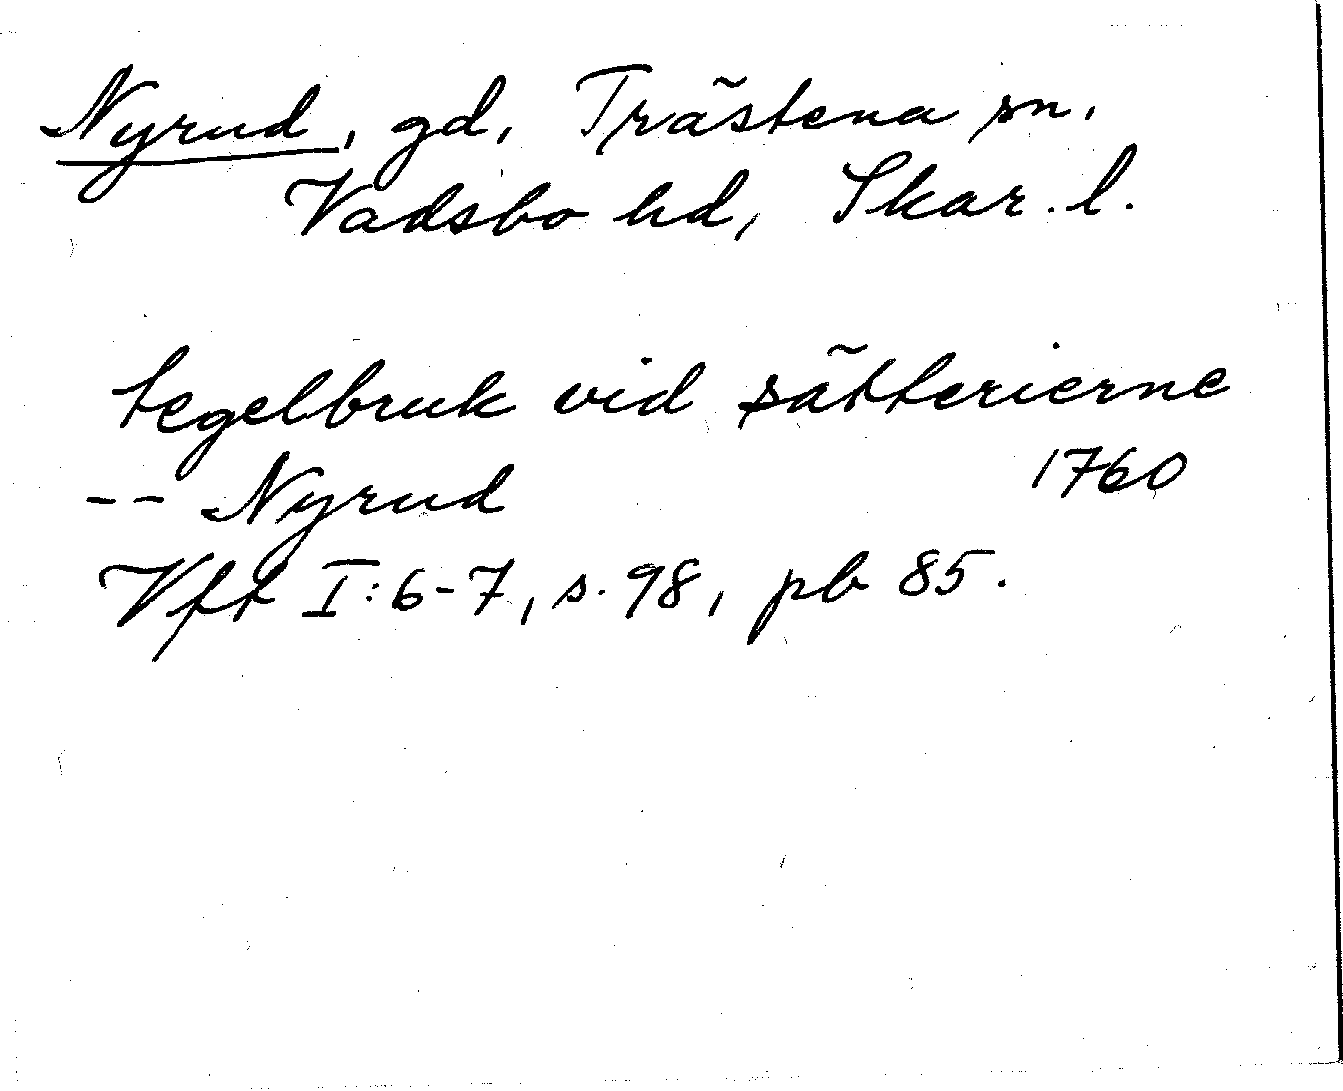 Nyrud, gd, Trästena sn,
Vadsbo hd, Skar. l.
tegelbruk vid sätterierne
-- Nyrud 1760
Vft I:6-7, s. 98, pb 85.